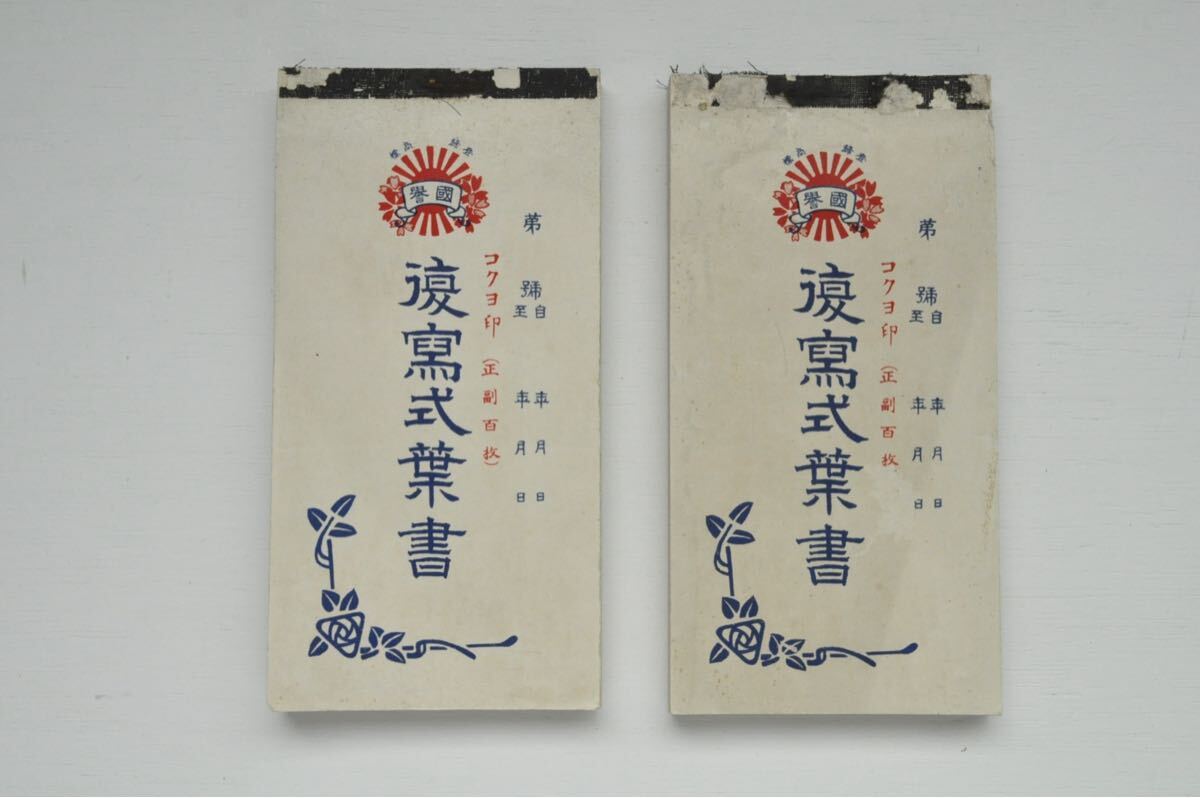 登錄商標
國誉
第 號
自 年 月 日
至 年 月 日
コクヨ印(正副百枚)
復寫式葉書
登錄商標
國誉
第 號
自 年 月 日
至 年 月 日
コクヨ印(正副百枚
復寫式葉書